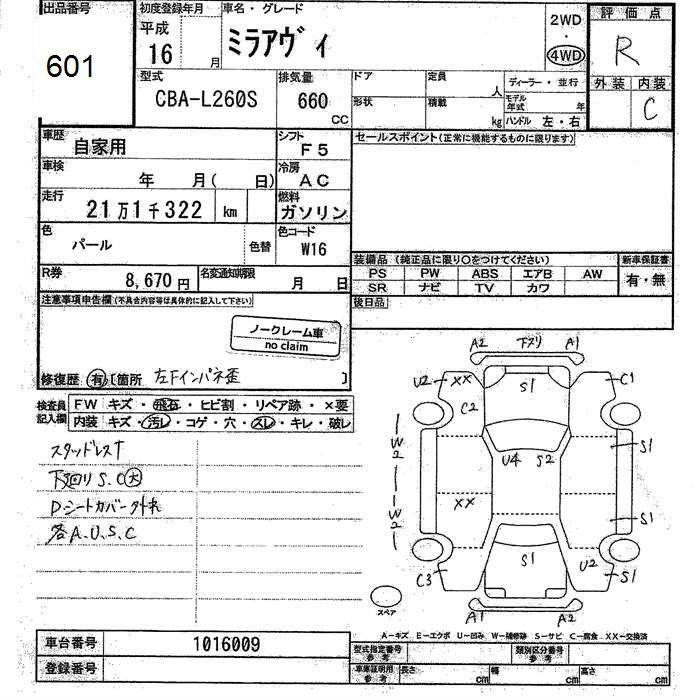 出品番号 初度登録年月 車名・グレード 評価点
601 平成 16 月 ミラアヴィ 2WD ・ 4WD R
型式 CBA-L260S 排気量 660 CC ドア 定員 人 ディーラー・並行 外装 内装
形状 積載 kg モデル年式 年 ハンドル 左・右 C
車歴 自家用 シフト F5 セールスポイント(正常に機能するものに限ります)
車検 年 月( 日) 冷房 AC
走行 21万1千322 km 燃料 ガソリン
色 パール 色替 色コード W16
装備品 (純正品に限り○をつけてください) 新車保証書
R券 8,670円 名変通知期限 月 日 PS PW ABS エアB AW 有・無
SR ナビ TV カワ
注意事項申告欄(不具合内容等は具体的に記入して下さい) 後日品
ノークレーム車
no claim
修復歴 有 [箇所 左Fインパネ歪 ]
検査員記入欄 FW キズ・飛石・ヒビ割・リペア跡・×要
内装 キズ・汚レ・コゲ・穴・スレ・キレ・破レ
スタッドレス
下廻りS.C大
D-シートカバー外れ
各A.U.S.C
A2 下スリ A1
U2 XX S1 C1
C2
W2 U4 S2 S1
XX
W2 S1
S1 U2
C3 S1
スペア A1 A2
A−キズ E−エクボ U−凹み W−補修跡 S−サビ C−腐食 XX−交換済
車台番号 1016009 型式指定番号 参考 類別区分番号 参考
登録番号 車庫証明用 参考 長さ cm 幅 cm 高さ cm